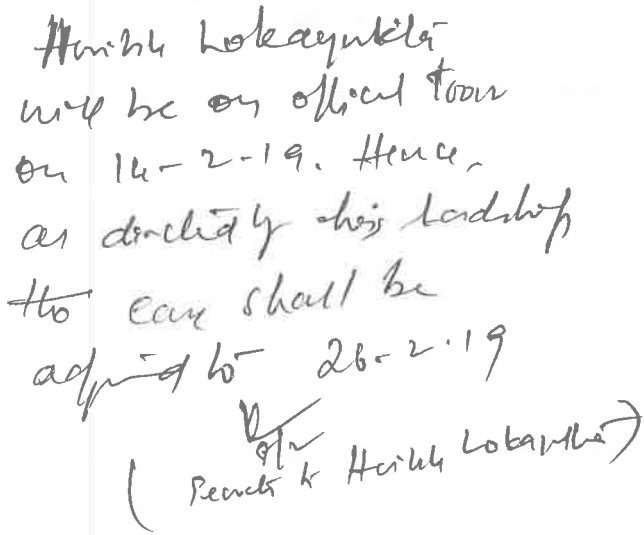 Hon'ble Lokayukta
will be on official Tour
on 14-2-19. Hence,
as directed by his Lordship
the case shall be
adjourned to 26-2-19
(Secretary to Hon'ble Lokayukta)